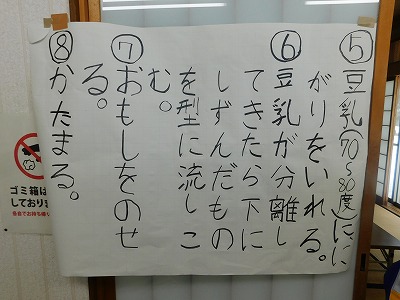 ⑤豆乳(70~80度)に、に
がりをいれる。
⑥豆乳が分離し
てきたら下に
しずんだもの
を型に流しこ
む。
⑦おもしをのせ
る。
⑧かたまる。
ゴミ箱は
しており